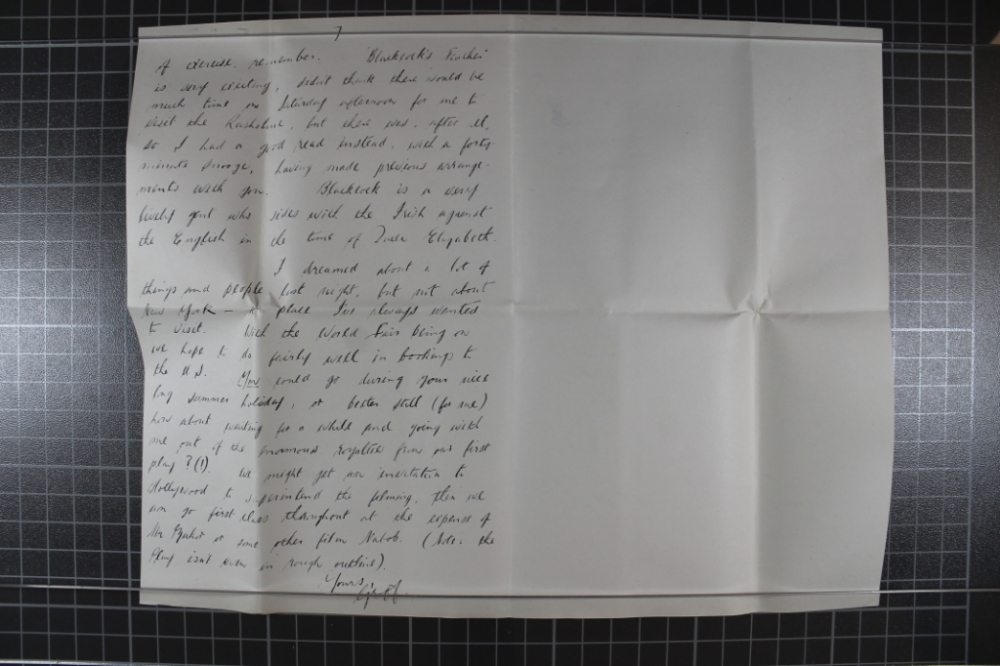 7
of exercise, remember. 'Blackcock's Feather'
is very exciting, didn't think there would be
much time on Saturday afternoon for me to
visit the, but there was, after all,
so I had a good read instead, with a forty
minute snooze, having made previous arrange-
ments with you. Blackcock is a very
lively gent who sides with the Irish against
the English in the time of Queen Elizabeth.
I dreamed about a lot of
things and people last night, but not about
New York — a place I've always wanted
to visit. With the World Fair being on
we hope to do fairly well in bookings to
the U.S. You could go during your nice
long summer holiday, or better still (for me)
how about waiting for a while and going with
me out of the enormous royalties from our first
play? (!) We might get an invitation to
Hollywood to superintend the filming, then we
can go first class throughout at the expense of
Mr or some other film Nabob. (Note: the
Play isn't even in rough outline).
Yours,